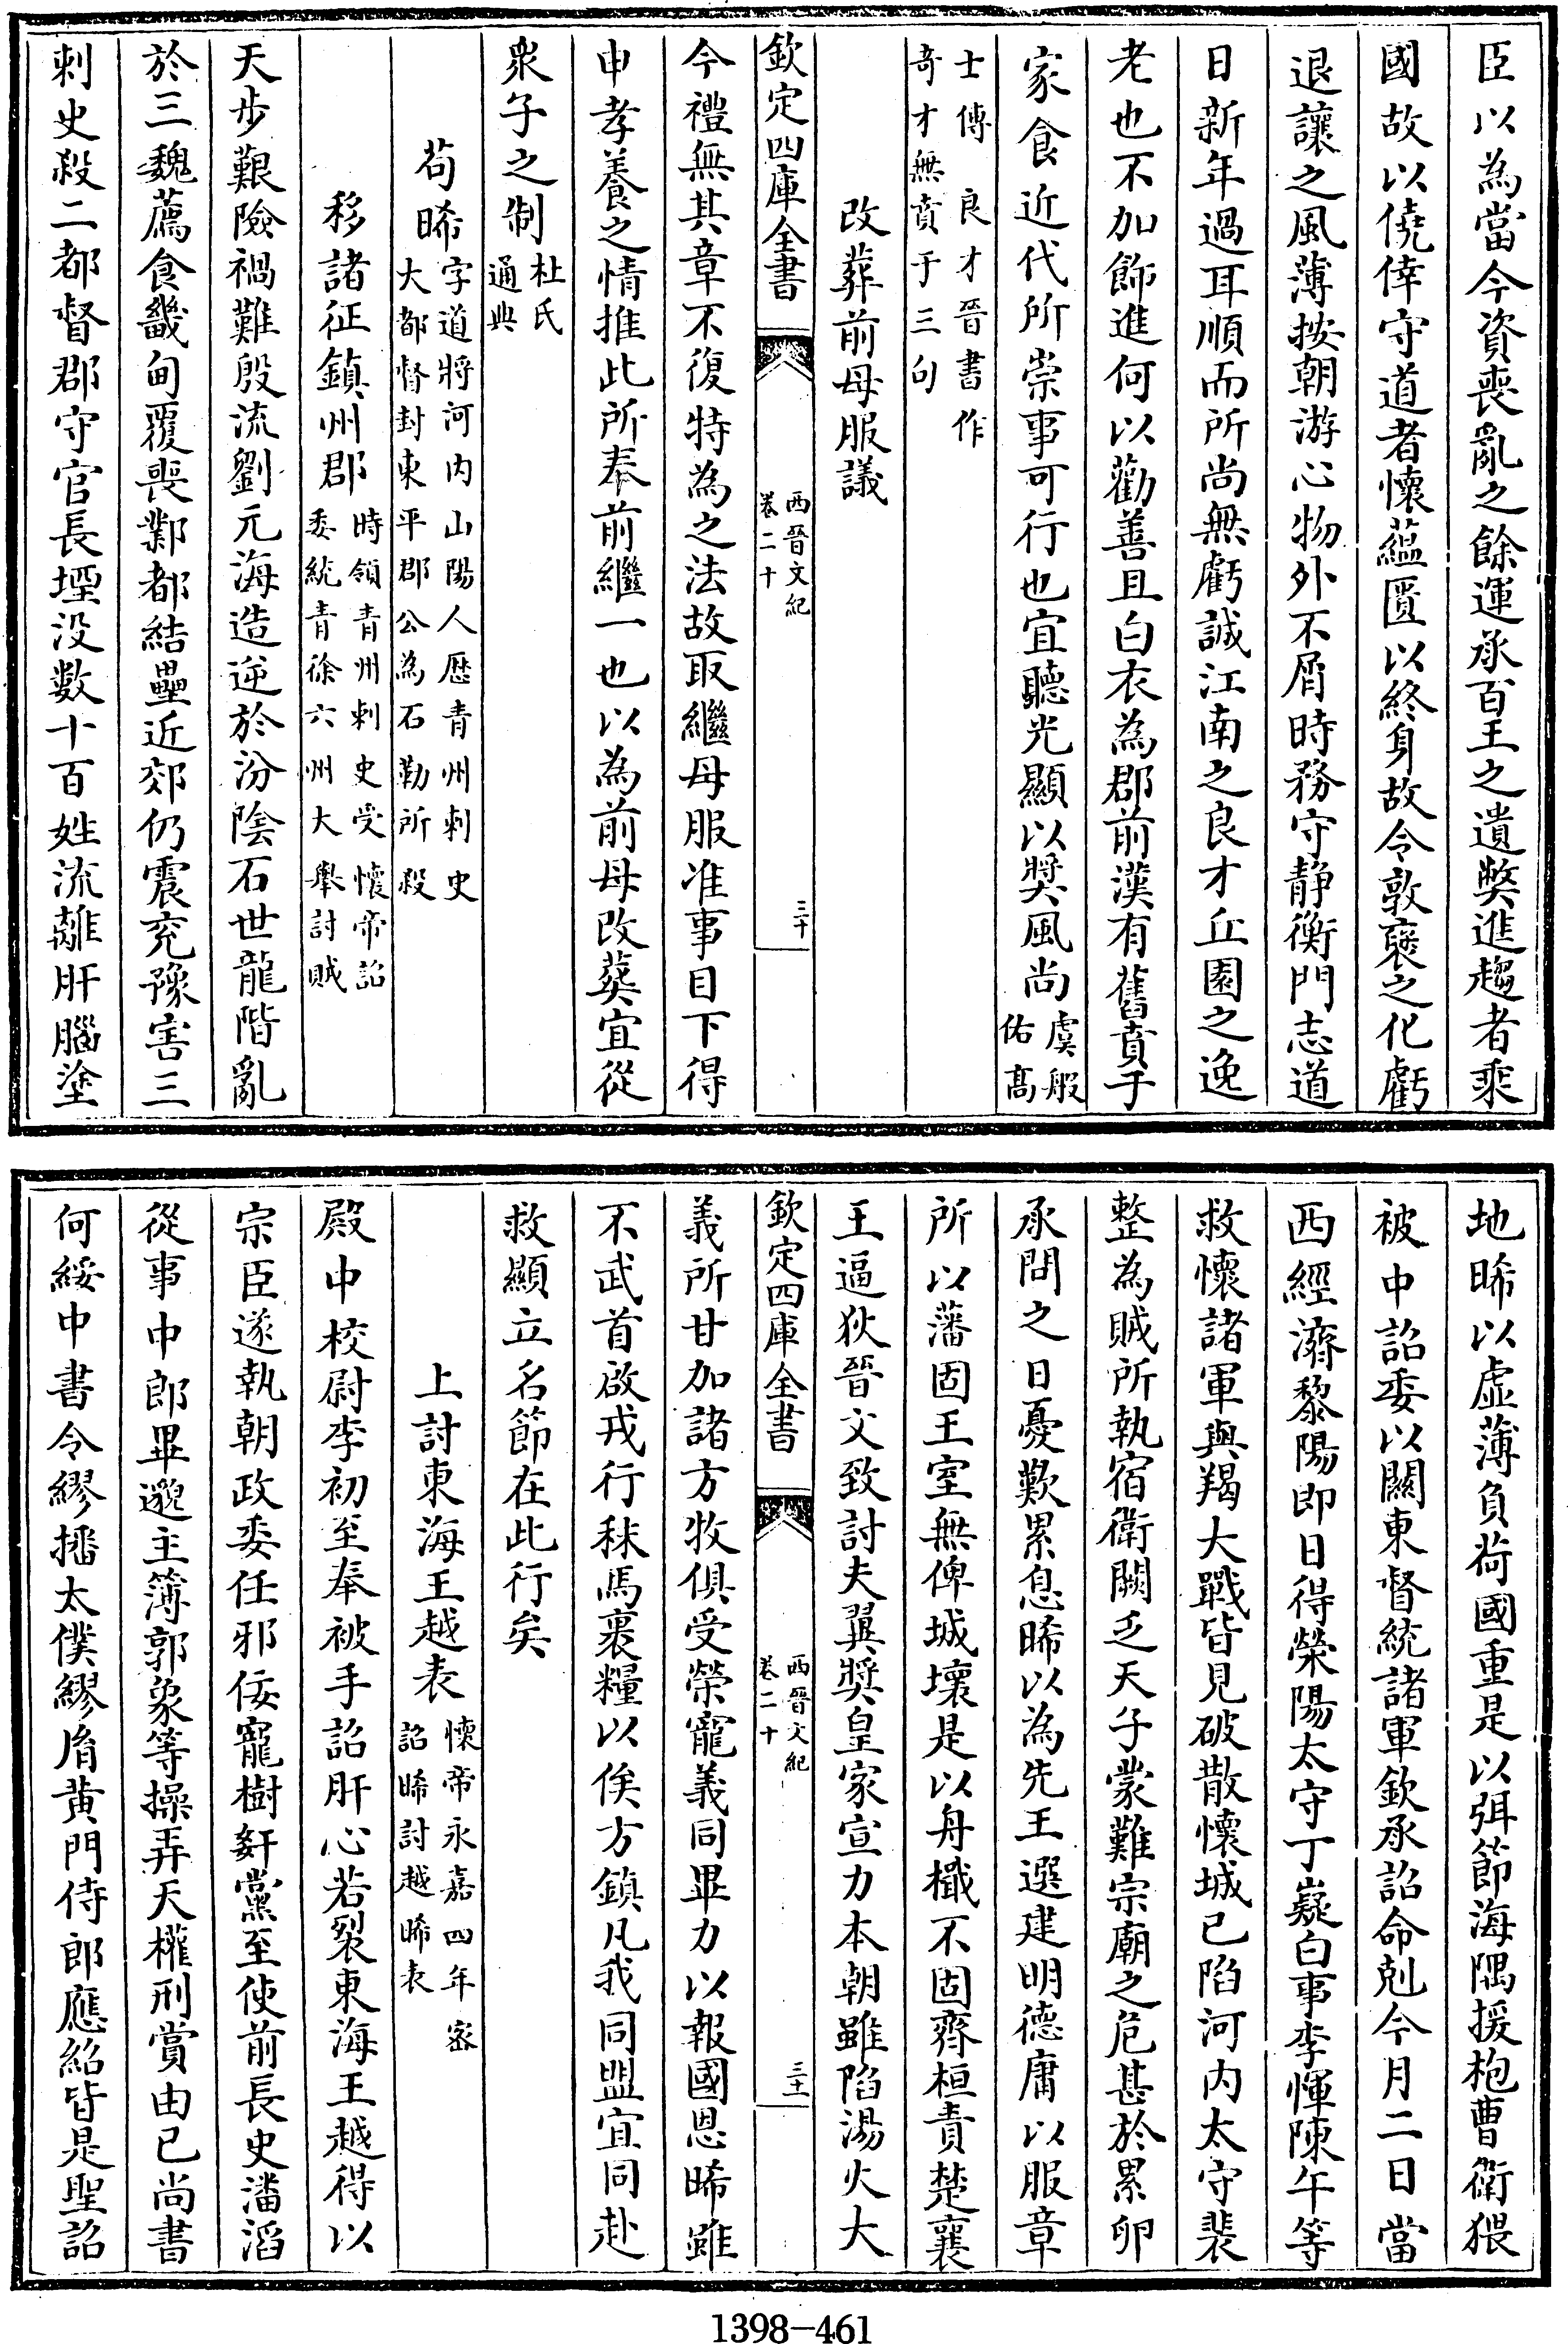 臣以為當今資喪亂之餘運承百王之遺弊進趨者乘
國故以僥倖守道者懷蘊匱以終身故令敦褒之化虧
退讓之風薄按朝游心物外不屑時務守靜衡門志道
日新年過耳順而所尚無虧誠江南之良才丘園之逸
老也不加飾進何以勸善且白衣為郡前漢有舊賁于
家食近代所崇事可行也宜聽光顯以獎風尚虞般
佑高
士傳良才晉書作
奇才無賁于三句
改葬前母服議
欽定四庫全書
西晉文紀
卷二十
三十
今禮無其章不復特為之法故取繼母服准事目下得
申孝養之情推此所奉前繼一也以為前母改葬宜從
衆子之制杜氏
通典
茍晞字道將河內山陽人歷青州刺史
大都督封東平郡公為石勒所殺
移諸征鎮州郡時領青州刺史受懷帝詔
委統青徐六州大舉討賊
天步艱險禍難殷流劉元海造逆於汾陰石世龍階亂
於三魏薦食畿甸覆喪鄴都結壘近郊仍震兖豫害三
刺史殺二都督郡守官長堙没數十百姓流離肝腦塗
地晞以虛薄負荷國重是以弭節海隅援枹曹衛猥
被中詔委以關東督統諸軍欽承詔命剋今月二日當
西經濟黎陽即日得滎陽太守丁嶷白事李惲陳午等
救懷諸軍與羯大戰皆見破散懷城已陷河內太守裴
整為賊所執宿衛闕乏天子蒙難宗廟之危甚於累卵
承問之日憂歎累息晞以為先王選建明德庸以服章
所以藩固王室無俾城壞是以舟檝不固齊桓責楚襄
王逼狄晉文致討夫翼獎皇家宣力本朝雖陷湯火大
欽定四庫全書
西晉文紀
卷二十
三十一
義所甘加諸方牧俱受榮寵義同畢力以報國恩晞雖
不武首啟戎行秣馬裹糧以俟方鎮凡我同盟宜同赴
救顯立名節在此行矣
上討東海王越表懷帝永嘉四年密
詔晞討越晞表
殿中校尉李初至奉被手詔肝心若裂東海王越得以
宗臣遂執朝政委任邪佞寵樹姧黨至使前長史潘滔
從事中郎畢邈主簿郭象等操弄天權刑賞由已尚書
何綏中書令繆播太僕繆胤黄門侍郎應紹皆是聖詔
1398—461